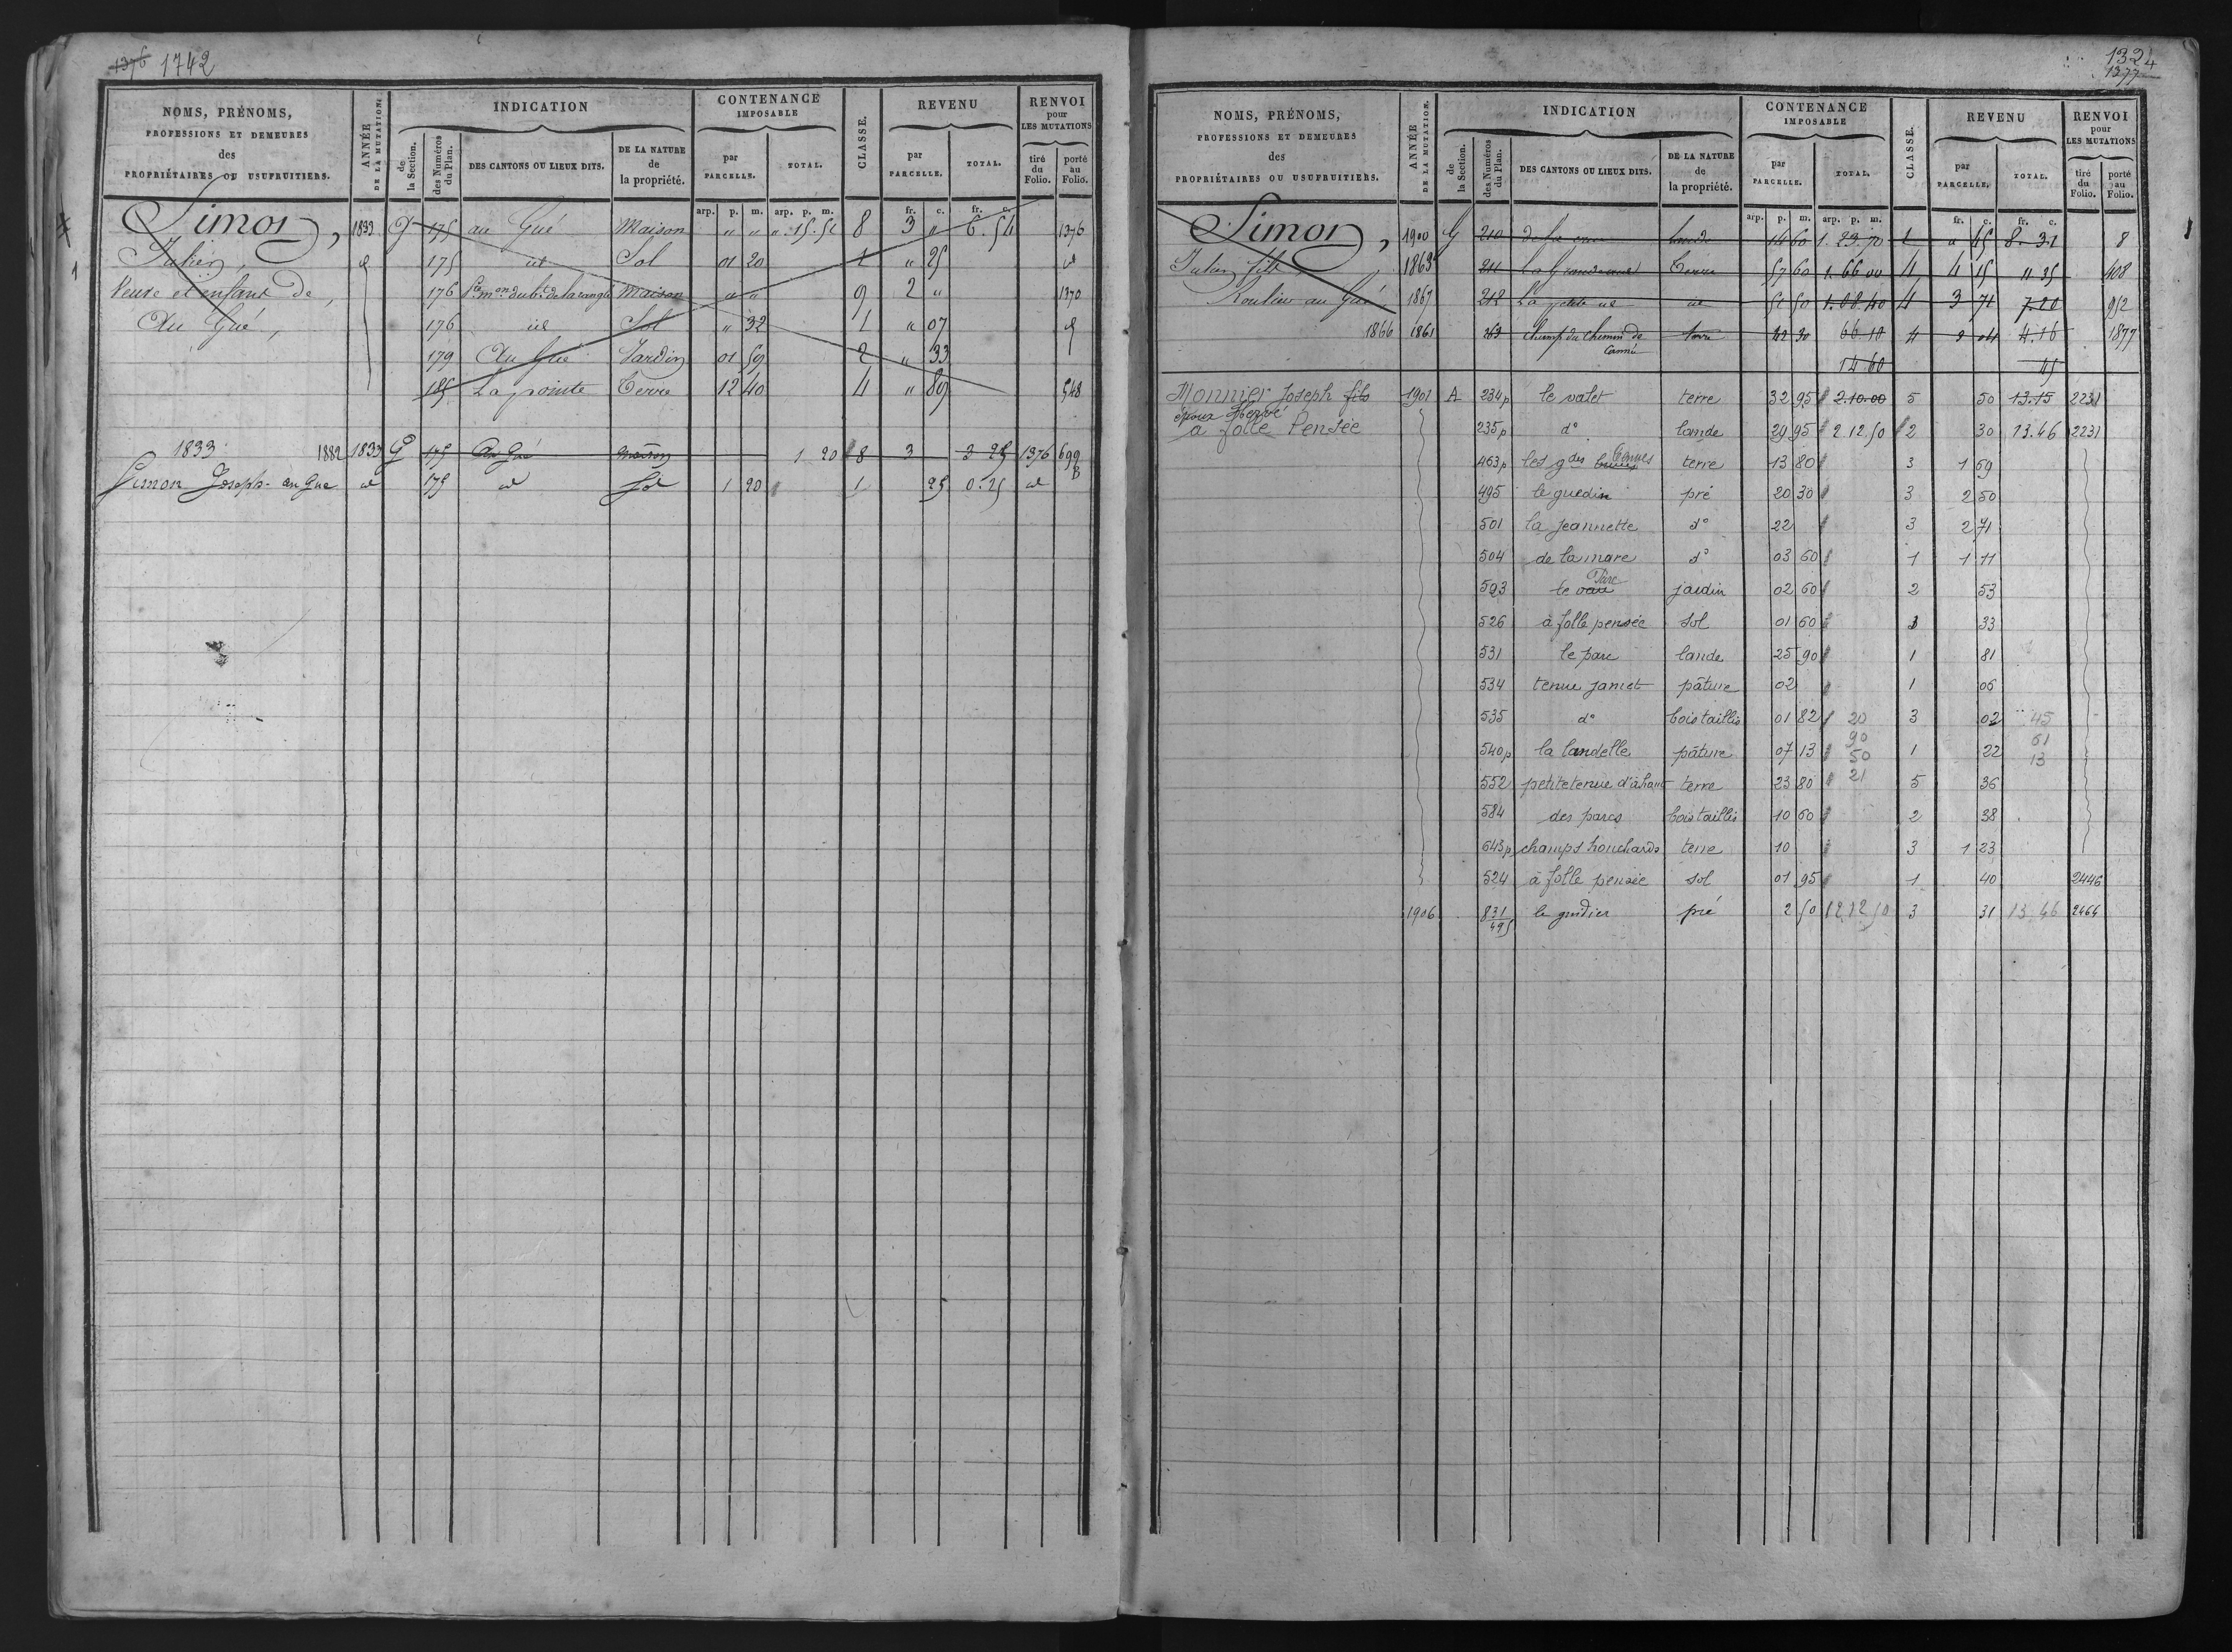 1376 1742
NOMS, PRÉNOMS,
PROFESSIONS ET DEMEURES
des
PROPRIÉTAIRES OU USUFRUITIERS.
ANNÉE
DE LA MUTATION.
INDICATION
de
la Section.
des Numéros
du Plan.
DES CANTONS OU LIEUX DITS.
DE LA NATURE
de
la propriété.
CONTENANCE
IMPOSABLE
par
PARCELLE.
TOTAL.
CLASSE.
REVENU
par
PARCELLE.
TOTAL.
RENVOI
pour
LES MUTATIONS
tiré
du
Folio.
porté
au
Folio.
arp. p. m. arp. p. m. fr. c. fr. c.
Simon, 1833 G 175 au Gué Maison " " ". 15. 51 8 3 " 6. 54 1376
Julien, id 175 id Sol 01 20 1 " 25 id
Veuve et enfans de, 176 Maison " " 9 2 " 1370
Au Gué, 176 id Sol " 32 1 " 07 id
179 Au Gué Jardin 01 59 2 " 33
185 La pointe Terre 12 40 4 " 89 548
1833 1882 1833 G 175 Au Gué maison 1 20 8 3 3 25 1376 699
B
Simon Joseph au Gué id 175 id Sol 1 20 1 25 0.25 id
1324
1377
NOMS, PRÉNOMS,
PROFESSIONS ET DEMEURES
des
PROPRIÉTAIRES OU USUFRUITIERS.
ANNÉE
DE LA MUTATION.
INDICATION
de
la Section.
des Numéros
du Plan.
DES CANTONS OU LIEUX DITS.
DE LA NATURE
de
la propriété.
CONTENANCE
IMPOSABLE
par
PARCELLE.
TOTAL.
CLASSE.
REVENU
par
PARCELLE.
TOTAL.
RENVOI
pour
LES MUTATIONS
tiré
du
Folio.
porté
au
Folio.
arp. p. m. arp. p. m. fr. c. fr. c.
Simon, 1900 G 210 lande 14 60 1. 23. 70 1 " 45 8. 31 8
Julien fils, 1863 211 Terre 57 60 1. 66 00 4 4 15 11 35 408
au Gué 1867 212 La petite id id 51 50 1. 08. 40 4 3 71 7.20 952
1866 1861 263 Champ du Chemin de terre 66 10 4 4.16 1877
14.60 45
Monnier Joseph fils 1901 A 234p le valet terre 32 95 2.10.00 5 50 13.15 2231
époux Hervé
à folle Pensée 235p d° lande 29 95 2 12.50 2 30 13.46 2231
463p les gdes tenues terre 13 80 3 1 69
495 le guedin pré 20 30 3 2 50
501 la jeannette d° 22 3 2 71
504 de la mare d° 03 60 1 1 11
Parc
593 le vau jardin 02 60 2 53
526 à folle pensée sol 01 60 1 33
531 le parc lande 25 90 1 81
534 tenue jamet pâture 02 1 06
535 d° bois taillis 01 82 20 3 02 45
90 61
540p la landelle pâture 07 13 50 1 22 13
552 petite tenue d'à haut terre 23 80 21 5 36
584 des parcs bois taillis 10 60 2 38
643p champs houchards terre 10 3 1 23
524 à folle pensée sol 01 95 1 40 2446
1906 831 le guidier pré 2 50 2 12 50 3 31 13.46 2464
495